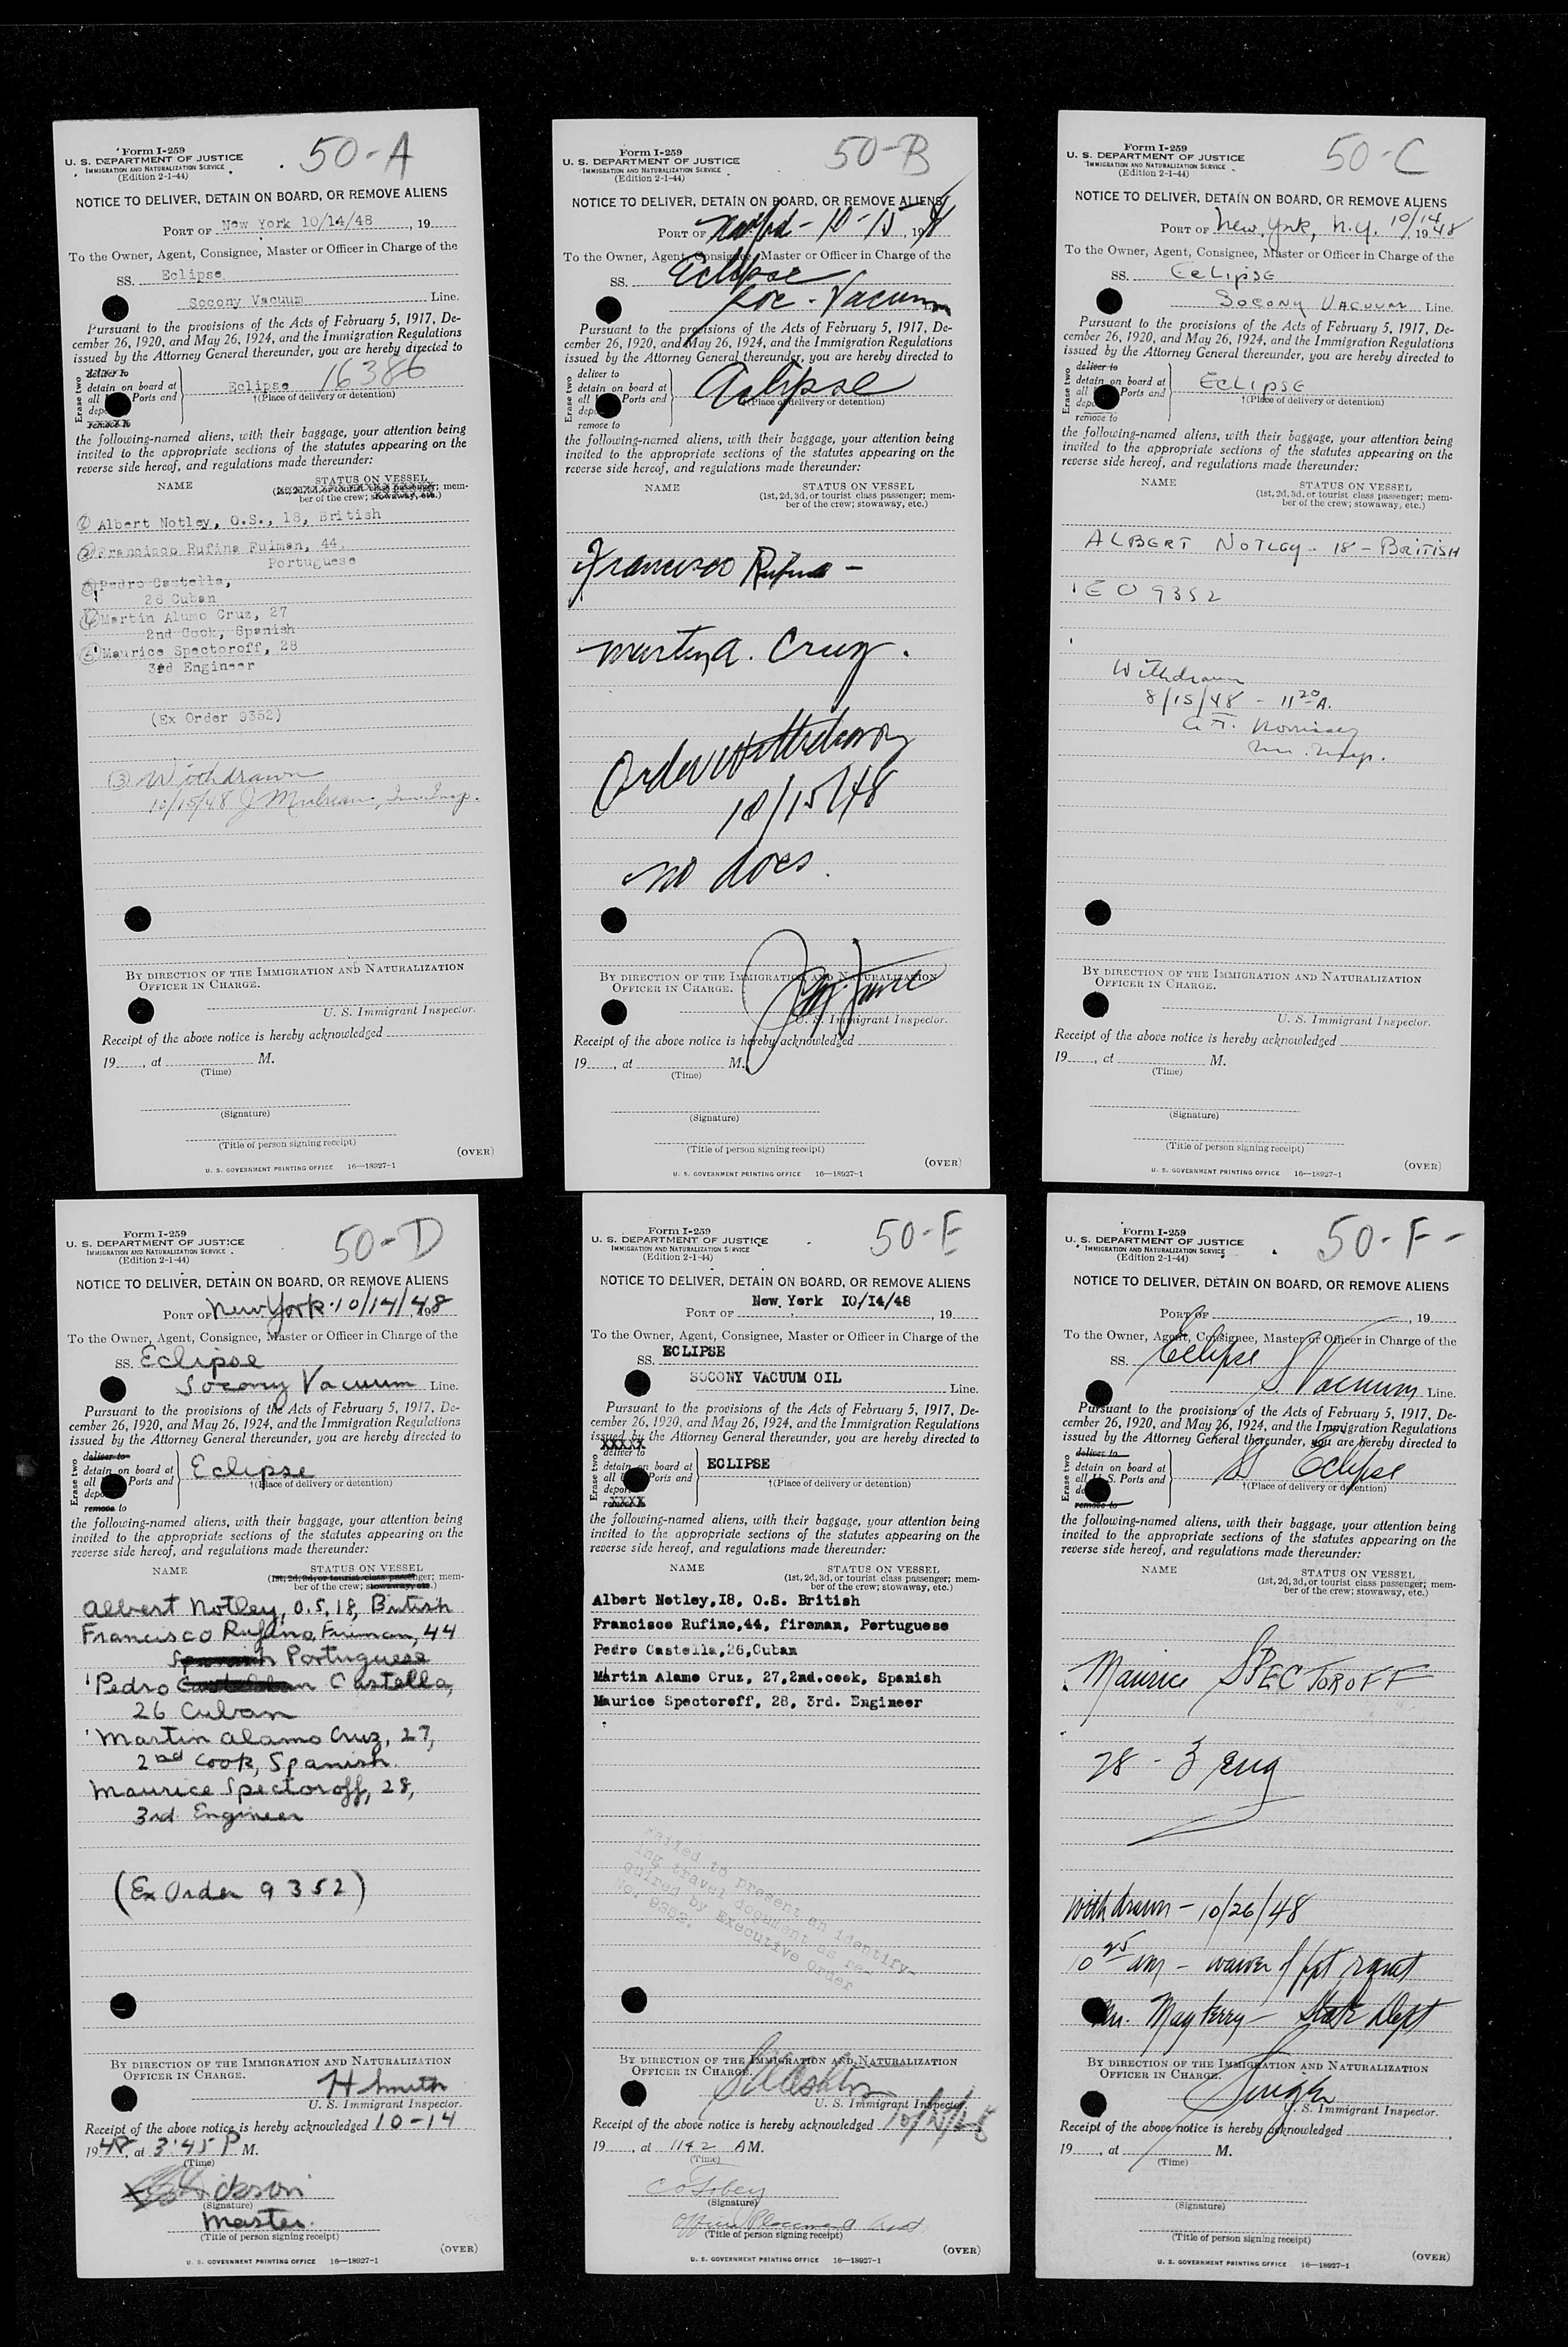 Form I-259
50-A
U. S. DEPARTMENT OF JUSTICE
IMMIGRATION AND NATURALIZATION SERVICE
(Edition 2-1-44)
NOTICE TO DELIVER, DETAIN ON BOARD, OR REMOVE ALIENS
PORT OF New York 10/14/48, 19
To the Owner, Agent, Consignee, Master or Officer in Charge of the
SS. Eclipse
Socony Vacuum Line.
Pursuant to the provisions of the Acts of February 5, 1917, De-
cember 26, 1920, and May 26, 1924, and the Immigration Regulations
issued by the Attorney General thereunder, you are hereby directed to
Erase two
deliver to
detain on board at
all Ports and
depo
remove to
Eclipse 16386
†(Place of delivery or detention)
the following-named aliens, with their baggage, your attention being
invited to the appropriate sections of the statutes appearing on the
reverse side hereof, and regulations made thereunder:
NAME
STATUS ON VESSEL
(1st, 2d, 3d, or tourist class passenger; mem-
ber of the crew; stowaway, etc.)
① Albert Notley, O.S., 18, British
② Francisco Rufina Fuiman, 44,
Portuguese
③ Pedro Castella,
26 Cuban
④ Martin Alumo Cruz, 27
2nd Cook, Spanish
⑤ Maurice Spectoroff, 28
3rd Engineer
(Ex Order 9352)
③ Withdrawn
10/15/48 J Imm. Insp.
BY DIRECTION OF THE IMMIGRATION AND NATURALIZATION
OFFICER IN CHARGE.
U. S. Immigrant Inspector.
Receipt of the above notice is hereby acknowledged
19, at M.
(Time)
(Signature)
(Title of person signing receipt)
(OVER)
U. S. GOVERNMENT PRINTING OFFICE 16—18927-1
Form I-259
50-B
U. S. DEPARTMENT OF JUSTICE
IMMIGRATION AND NATURALIZATION SERVICE
(Edition 2-1-44)
NOTICE TO DELIVER, DETAIN ON BOARD, OR REMOVE ALIENS
PORT OF 10-15, 1948
To the Owner, Agent, Consignee, Master or Officer in Charge of the
SS. Eclipse
Soc-Vacuum
Pursuant to the provisions of the Acts of February 5, 1917, De-
cember 26, 1920, and May 26, 1924, and the Immigration Regulations
issued by the Attorney General thereunder, you are hereby directed to
Erase two
deliver to
detain on board at
all Ports and
depo
remove to
Eclipse
†(Place of delivery or detention)
the following-named aliens, with their baggage, your attention being
invited to the appropriate sections of the statutes appearing on the
reverse side hereof, and regulations made thereunder:
NAME
STATUS ON VESSEL
(1st, 2d, 3d, or tourist class passenger; mem-
ber of the crew; stowaway, etc.)
Francisco Rufino -
Martin A. Cruz.
Order Withdrawn
10/15/48
no docs.
BY DIRECTION OF THE IMMIGRATION AND NATURALIZATION
OFFICER IN CHARGE.
U. S. Immigrant Inspector.
Receipt of the above notice is hereby acknowledged
19, at M.
(Time)
(Signature)
(Title of person signing receipt)
(OVER)
U. S. GOVERNMENT PRINTING OFFICE 16—18927-1
Form I-259
50-C
U. S. DEPARTMENT OF JUSTICE
IMMIGRATION AND NATURALIZATION SERVICE
(Edition 2-1-44)
NOTICE TO DELIVER, DETAIN ON BOARD, OR REMOVE ALIENS
PORT OF New York, N.Y. 10/14, 1948
To the Owner, Agent, Consignee, Master or Officer in Charge of the
SS. EcLipSE
SOCONY VACUUM Line.
Pursuant to the provisions of the Acts of February 5, 1917, De-
cember 26, 1920, and May 26, 1924, and the Immigration Regulations
issued by the Attorney General thereunder, you are hereby directed to
Erase two
deliver to
detain on board at
all Ports and
depo
remove to
EcLIPSE
†(Place of delivery or detention)
the following-named aliens, with their baggage, your attention being
invited to the appropriate sections of the statutes appearing on the
reverse side hereof, and regulations made thereunder:
NAME
STATUS ON VESSEL
(1st, 2d, 3d, or tourist class passenger; mem-
ber of the crew; stowaway, etc.)
ALBERT NOTLEY - 18 - BRITISH
EO 9352
Withdrawn
8/15/48 - 11 20 A.
Imm. Insp.
BY DIRECTION OF THE IMMIGRATION AND NATURALIZATION
OFFICER IN CHARGE.
U. S. Immigrant Inspector.
Receipt of the above notice is hereby acknowledged
19, at M.
(Time)
(Signature)
(Title of person signing receipt)
(OVER)
U. S. GOVERNMENT PRINTING OFFICE 16—18927-1
Form I-259
50-D
U. S. DEPARTMENT OF JUSTICE
IMMIGRATION AND NATURALIZATION SERVICE
(Edition 2-1-44)
NOTICE TO DELIVER, DETAIN ON BOARD, OR REMOVE ALIENS
PORT OF New York 10/14/, 1948
To the Owner, Agent, Consignee, Master or Officer in Charge of the
SS. Eclipse
Socony Vacuum Line.
Pursuant to the provisions of the Acts of February 5, 1917, De-
cember 26, 1920, and May 26, 1924, and the Immigration Regulations
issued by the Attorney General thereunder, you are hereby directed to
Erase two
deliver to
detain on board at
all Ports and
depo
remove to
Eclipse
†(Place of delivery or detention)
the following-named aliens, with their baggage, your attention being
invited to the appropriate sections of the statutes appearing on the
reverse side hereof, and regulations made thereunder:
NAME
STATUS ON VESSEL
(1st, 2d, 3d, or tourist class passenger; mem-
ber of the crew; stowaway, etc.)
Albert Notley, O.S, 18, British
Francisco Rufino, Fireman, 44
Spanish Portuguese
Pedro Castella,
26 Cuban
Martin Alamo Cruz, 27,
2nd Cook, Spanish.
Maurice Spectoroff, 28,
3rd Engineer
(Ex Order 9352)
BY DIRECTION OF THE IMMIGRATION AND NATURALIZATION
OFFICER IN CHARGE.
H Smith
U. S. Immigrant Inspector.
Receipt of the above notice is hereby acknowledged 10-14
1948, at 3:45 P M.
(Time)
(Signature)
Master.
(Title of person signing receipt)
(OVER)
U. S. GOVERNMENT PRINTING OFFICE 16—18927-1
Form I-259
50-E
U. S. DEPARTMENT OF JUSTICE
IMMIGRATION AND NATURALIZATION SERVICE
(Edition 2-1-44)
NOTICE TO DELIVER, DETAIN ON BOARD, OR REMOVE ALIENS
New York I0/I4/48
PORT OF , 19
To the Owner, Agent, Consignee, Master or Officer in Charge of the
SS. ECLIPSE
SOCONY VACUUM OIL Line.
Pursuant to the provisions of the Acts of February 5, 1917, De-
cember 26, 1920, and May 26, 1924, and the Immigration Regulations
issued by the Attorney General thereunder, you are hereby directed to
Erase two
XXXXX
deliver to
detain on board at
all Ports and
depor
remove to
ECLIPSE
†(Place of delivery or detention)
the following-named aliens, with their baggage, your attention being
invited to the appropriate sections of the statutes appearing on the
reverse side hereof, and regulations made thereunder:
NAME
STATUS ON VESSEL
(1st, 2d, 3d, or tourist class passenger; mem-
ber of the crew; stowaway, etc.)
Albert Notley,I8, O.S. British
Francisco Rufino,44, fireman, Portuguese
Pedro Castella,26,Cuban
Martin Alamo Cruz, 27,2nd.cook, Spanish
Maurice Spectoroff, 28, 3rd. Engineer
Failed to present an identify-
ing travel document as re-
quired by Executive Order
No. 9352.
BY DIRECTION OF THE IMMIGRATION AND NATURALIZATION
OFFICER IN CHARGE.
U. S. Immigrant Inspector.
Receipt of the above notice is hereby acknowledged
19, at 1142 AM.
(Time)
(Signature)
(Title of person signing receipt)
(OVER)
U. S. GOVERNMENT PRINTING OFFICE 16—18927-1
Form I-259
50-F-
U. S. DEPARTMENT OF JUSTICE
IMMIGRATION AND NATURALIZATION SERVICE
(Edition 2-1-44)
NOTICE TO DELIVER, DETAIN ON BOARD, OR REMOVE ALIENS
PORT OF , 19
To the Owner, Agent, Consignee, Master or Officer in Charge of the
SS. Eclipse
S. Vacuum Line.
Pursuant to the provisions of the Acts of February 5, 1917, De-
cember 26, 1920, and May 26, 1924, and the Immigration Regulations
issued by the Attorney General thereunder, you are hereby directed to
Erase two
deliver to
detain on board at
all U. S. Ports and
de
remove to
SS Eclipse
†(Place of delivery or detention)
the following-named aliens, with their baggage, your attention being
invited to the appropriate sections of the statutes appearing on the
reverse side hereof, and regulations made thereunder:
NAME
STATUS ON VESSEL
(1st, 2d, 3d, or tourist class passenger; mem-
ber of the crew; stowaway, etc.)
Maurice SPECTOROFF
28 - 3 Eng
Withdrawn - 10/26/48
10 45 am - waiver of ppt
State Dept
BY DIRECTION OF THE IMMIGRATION AND NATURALIZATION
OFFICER IN CHARGE.
U. S. Immigrant Inspector.
Receipt of the above notice is hereby acknowledged
19, at M.
(Time)
(Signature)
(Title of person signing receipt)
(OVER)
U. S. GOVERNMENT PRINTING OFFICE 16—18927-1